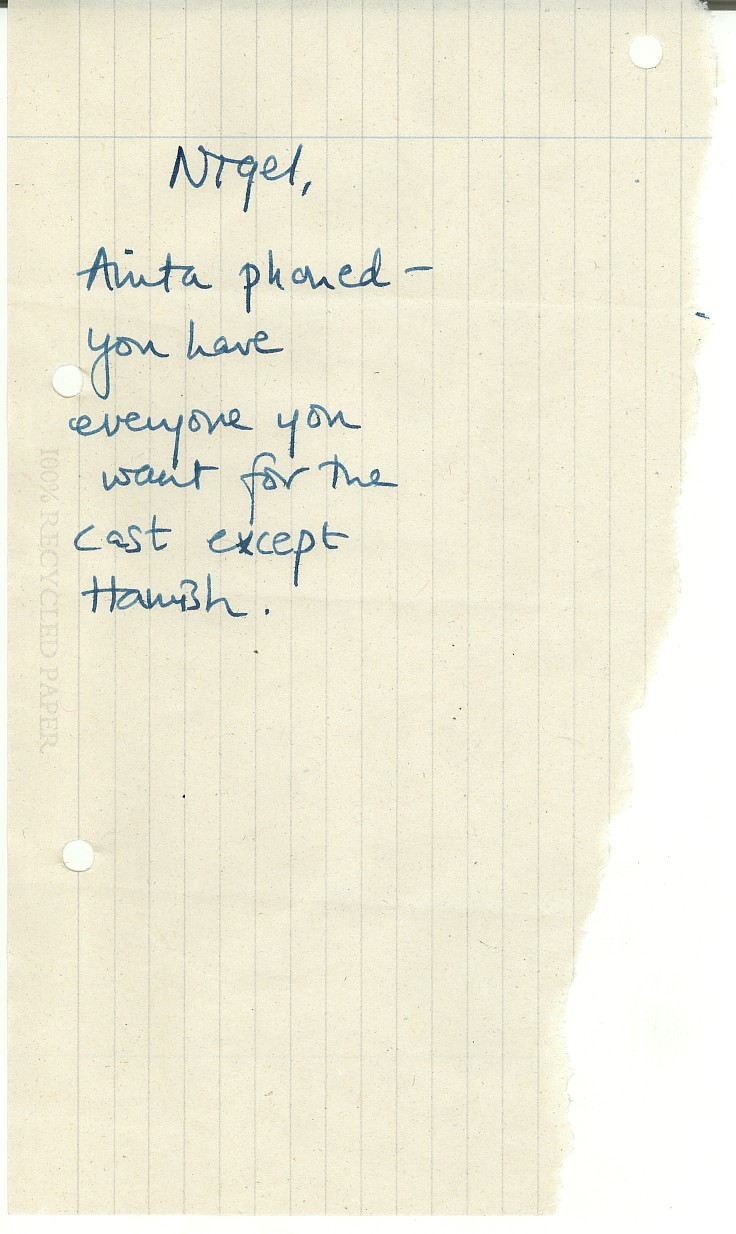 Nigel,
Anita phoned –
you have
everyone you
want for the
cast except
Hamish.
100% RECYCLED PAPER